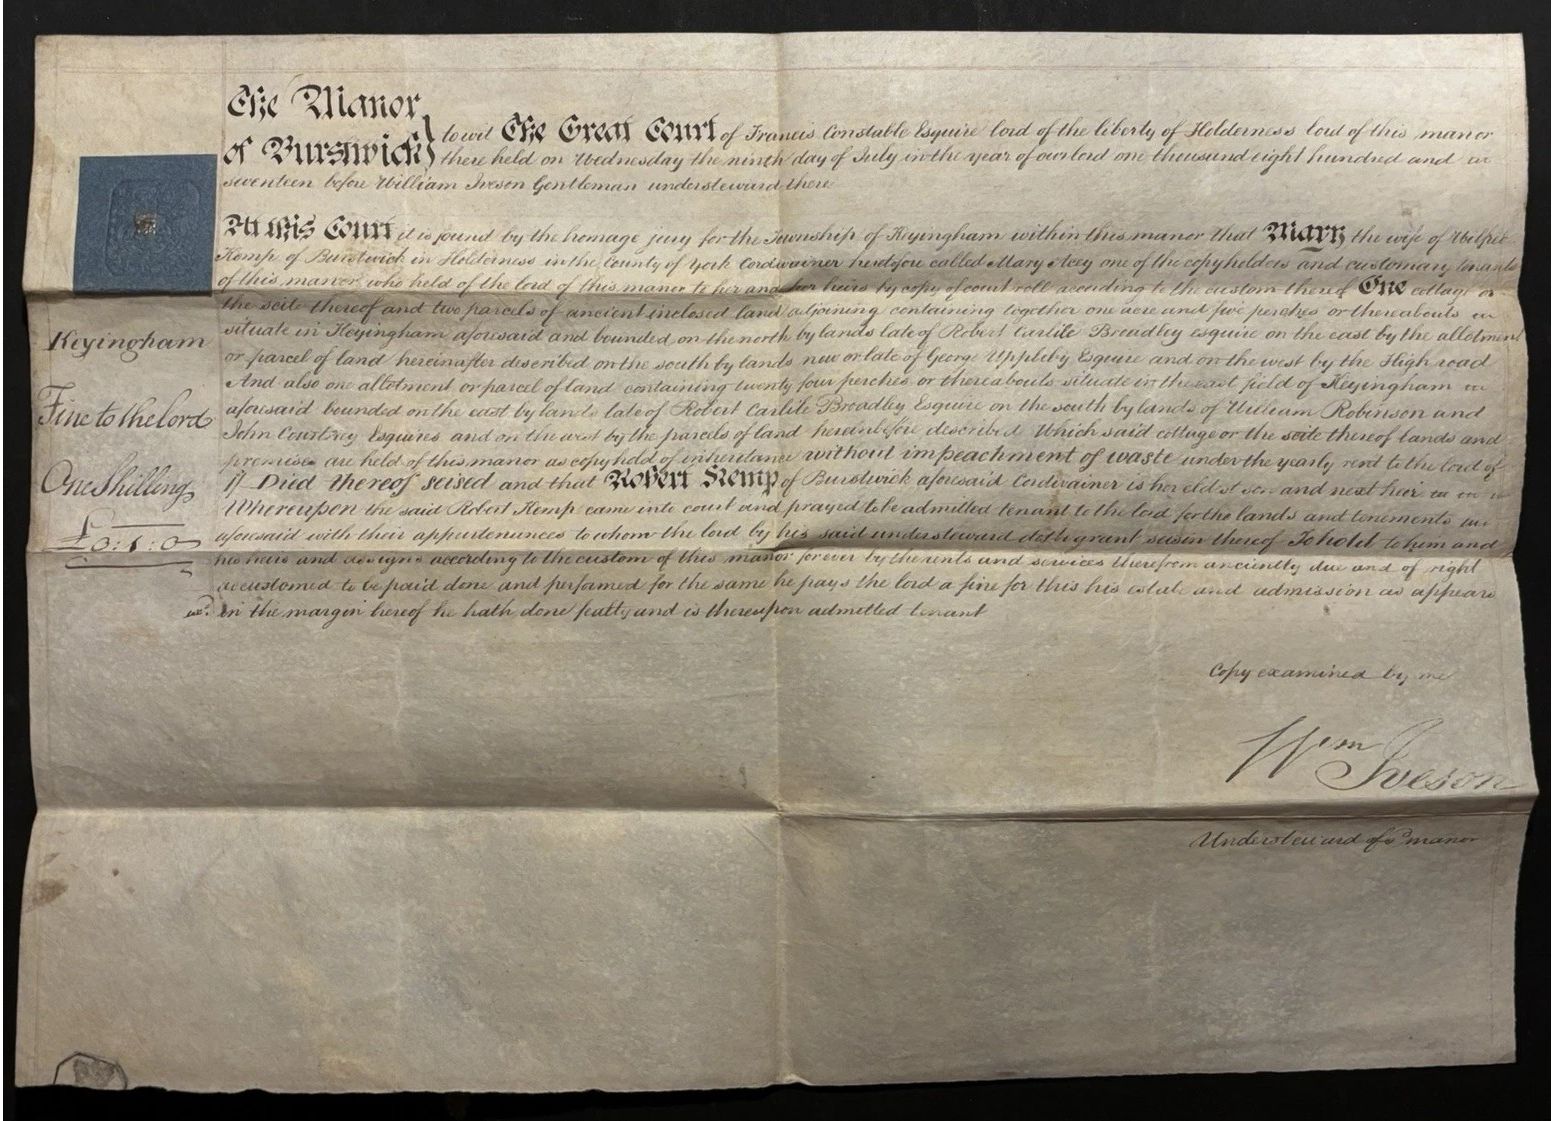 The Manor
of Burstwick } to wit The Great Court of Francis Constable Esquire lord of the liberty of Holderness lord of this manor
there held on Wednesday the ninth day of July in the year of our lord one thousand eight hundred and
seventeen before William Iveson Gentleman understeward there
At this Court it is found by the homage jury for the Township of Keyingham within this manor that Mary the wife of
Kemp of Burstwick in Holderness in the County of York Cordwainer heretofore called Mary Acey one of the copyholders and customary tenants
of this manor who held of the lord of this manor to her and her heirs by copy of court roll according to the custom thereof One cottage or
the scite thereof and two parcels of ancient inclosed land adjoining containing together one acre and five perches or thereabouts
situate in Keyingham aforesaid and bounded on the north by lands late of Robert Carlile Broadley esquire on the east by the allotment
or parcel of land hereinafter described on the south by lands now or late of George Uppleby Esquire and on the west by the High road
And also one allotment or parcel of land containing twenty four perches or thereabouts situate in the east field of Keyingham
aforesaid bounded on the east by lands late of Robert Carlile Broadley Esquire on the south by lands of William Robinson and
John Courtney Esquires and on the west by the parcels of land hereinbefore described Which said cottage or the scite thereof lands and
premises are held of this manor as copyhold of inheritance without impeachment of waste under the yearly rent to the lord of
Died thereof seised and that Robert Kemp of Burstwick aforesaid Cordwainer is her eldest son and next heir
Whereupon the said Robert Kemp came into court and prayed to be admitted tenant to the lord for the lands and tenements
aforesaid with their appurtenances to whom the lord by his said understeward doth grant seisin thereof To hold to him and
his heirs and assigns according to the custom of this manor for ever by the rents and services therefrom anciently due and of right
accustomed to be paid done and performed for the same he pays the lord a fine for this his estate and admission as appears
in the margin hereof he hath done fealty and is thereupon admitted tenant
Keyingham
Fine to the lord
One Shilling
£0:1:0
Copy examined by me
Wm Iveson
Understeward of sd manor